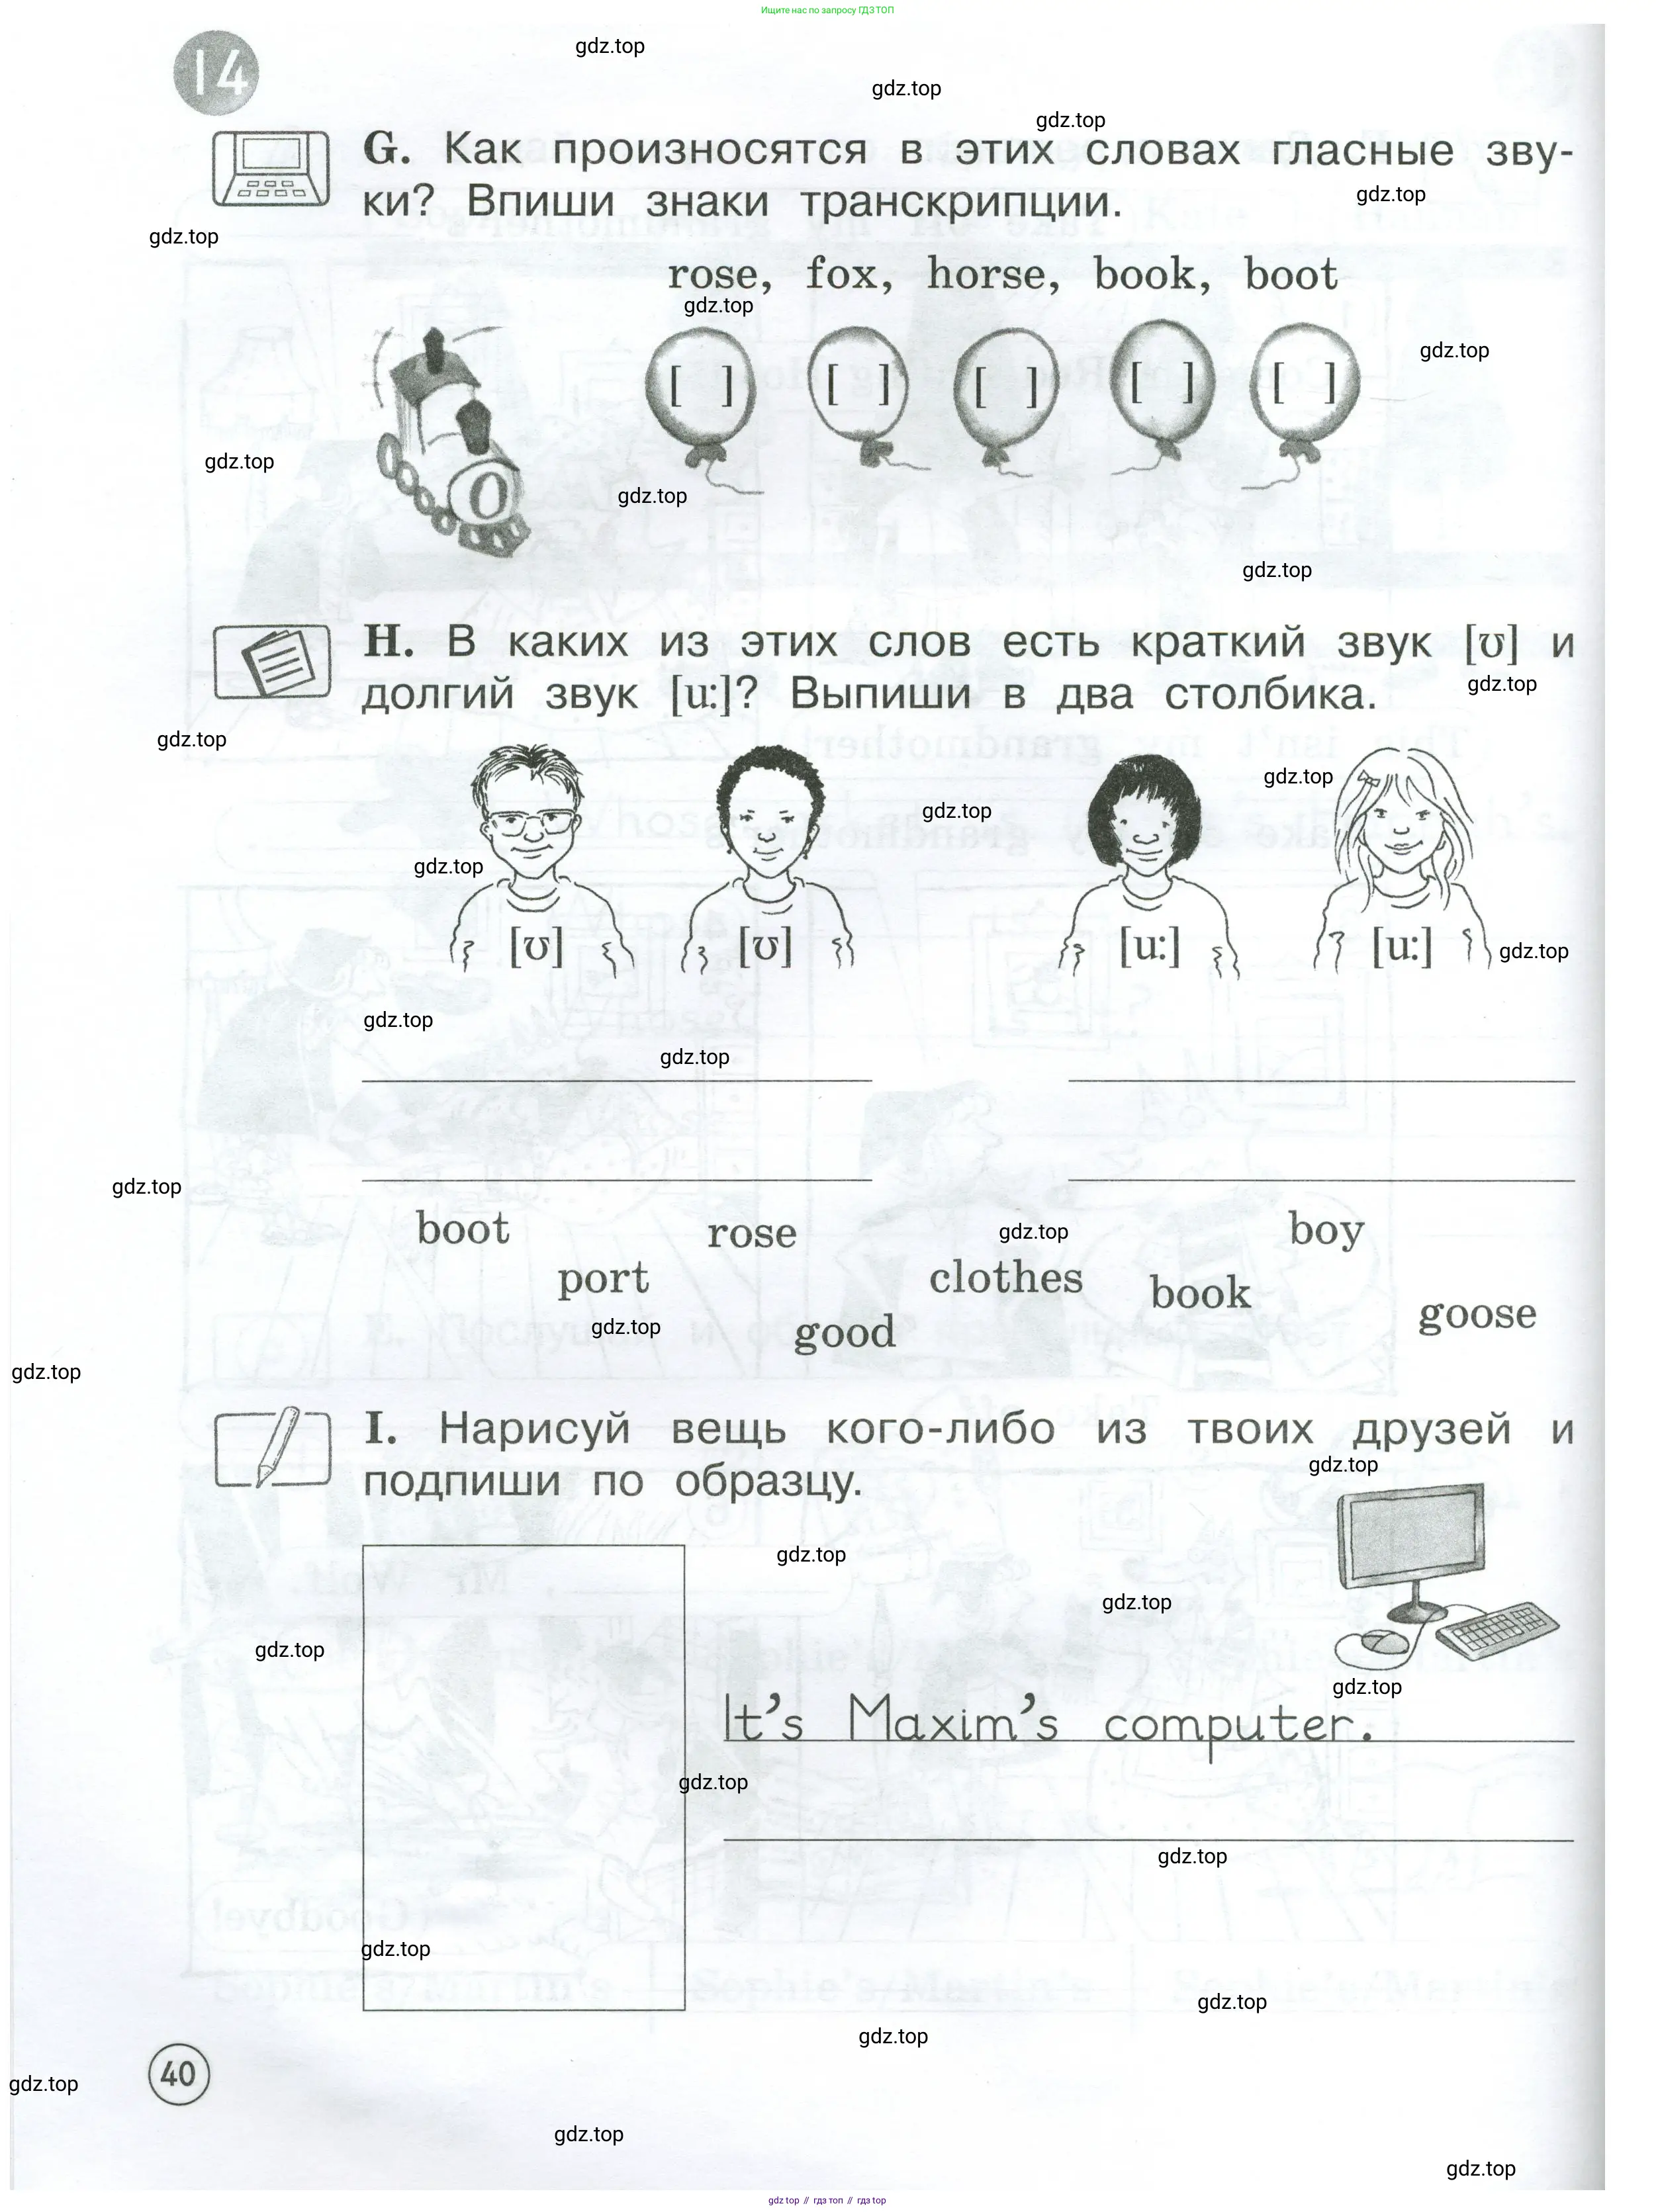 Ищите нас по запросу ГДЗ ТОП
14
gdz.top
gdz.top
gdz.top
G. Как произносятся в этих словах гласные зву-
ки? Впиши знаки транскрипции.
gdz.top
gdz.top
rose, fox, horse, book, boot
gdz.top
gdz.top
[ ] [ ] [ ] [ ] [ ]
gdz.top
O
gdz.top
gdz.top
H. В каких из этих слов есть краткий звук [ʊ] и
долгий звук [u:]? Выпиши в два столбика.
gdz.top
gdz.top
gdz.top
gdz.top
gdz.top
[ʊ] [ʊ] [u:] [u:]
gdz.top
gdz.top
gdz.top
gdz.top
boot rose gdz.top boy
port clothes book
gdz.top good goose
gdz.top
I. Нарисуй вещь кого-либо из твоих друзей и
подпиши по образцу.
gdz.top
gdz.top
gdz.top
gdz.top
gdz.top
It's Maxim's computer.
gdz.top
gdz.top
gdz.top
gdz.top
gdz.top
40
gdz.top
gdz.top
gdz.top
gdz top // гдз топ // гдз top